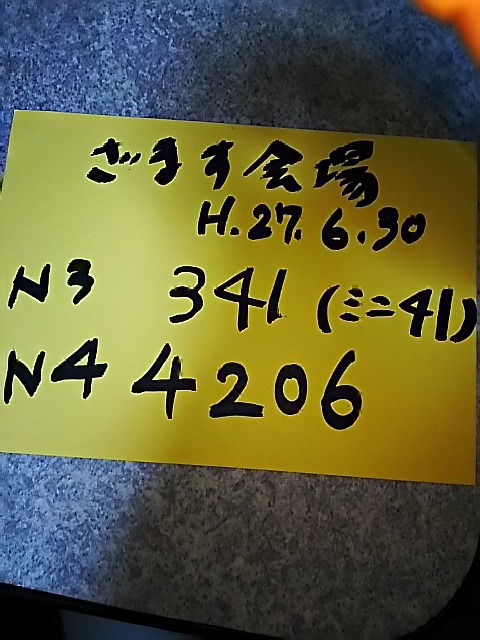 ざます会場
H.27.6.30
N3 341 (ミニ41)
N4 4206